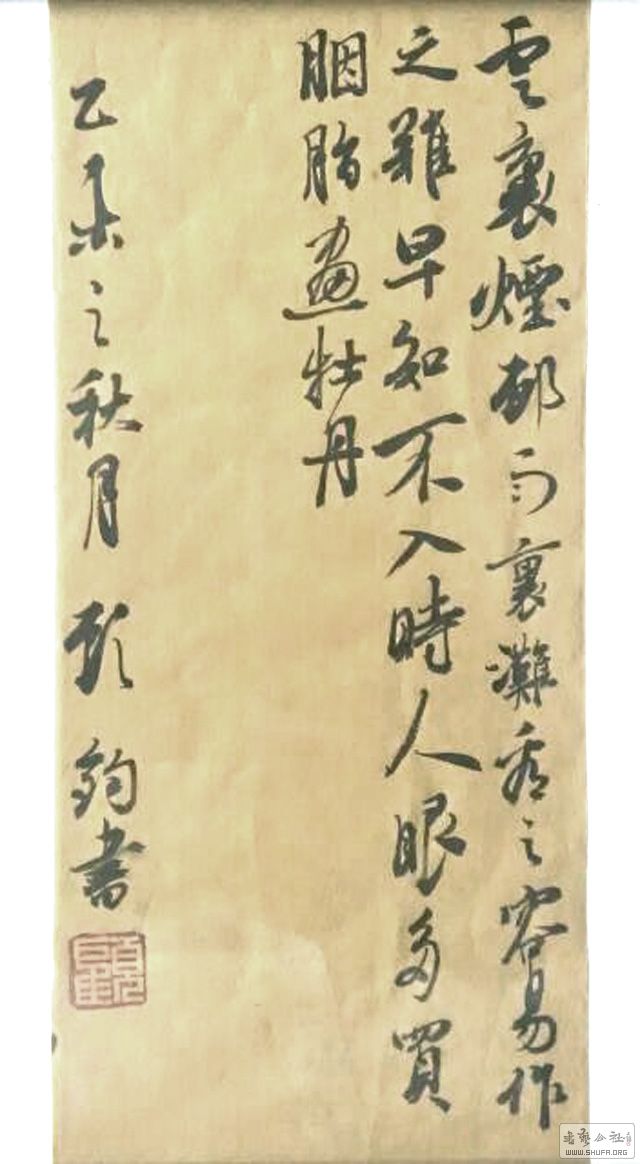 雲裏煙邨雨裏灘看之容易作
之難早知不入時人眼多買
胭脂畫牡丹
乙未之秋月 鈞書
書藝公社
WWW.SHUFA.ORG